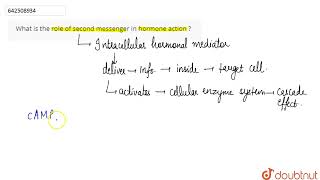 642508934
What is the role of second messenger in hormone action ?
Intracellular hormonal mediator
deliver → info. → inside → target cell.
activates → cellular enzyme system → cascade
effect.
CAMP,
doubtnut